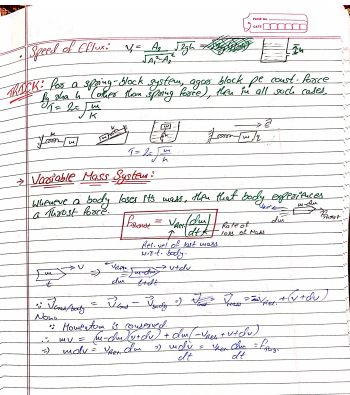 PAGE No.
DATE
• Speed of Efflux: V₁ = A₂ / √(A₁² - A₂²) √2gh
TRICK: For a spring-block system, agar block pe const. force
lag rha h (other than spring force), then in all such cases,
T = 2π √(m/k)
T = 2π √(m/k)
→ Variable Mass System:
Whenever a body loses its mass, then that body experiences
a thrust force.
F_thrust = V_rel (dm/dt) → Rate of loss of Mass
Rel. vel of lost mass
w.r.t. body.
m → v ⇒ m-dm → v+dv
t t+dt
∵ V_lost/body = V_lost - V_body ⇒ V_lost = -V_rel + (v+dv)
Now,
∵ Momentum is conserved
∴ mv = (m-dm)(v+dv) + dm(-v_rel + v+dv)
⇒ mdv = v_rel dm ⇒ m dv/dt = v_rel dm/dt = F_thrust